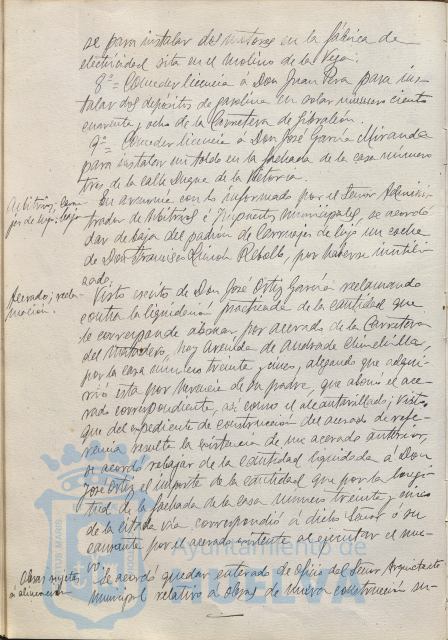 se para instalar dos motores en la fábrica de
electricidad sita en el Molino de la Vega.
8º = Conceder licencia á Don Juan Pera para ins-
talar dos depósitos de gasolina en solar número ciento
cuarenta y ocho de la Carretera de Gibraleón.
9º = Conceder licencia á Don José García Miranda
para instalar un toldo en la fachada de la casa número
tres de la calle Duque de la Victoria.
Arbitrios, Carrua-
jes de lujo; baja
De acuerdo con lo informado por el Señor Adminis-
trador de Arbitrios é Impuestos Municipales, se acordó
dar de baja del padrón de Carruajes de lujo un coche
de Don Francisco Limón Rebollo, por haberse inutili-
zado.
Acerado; recla-
mación.
Visto escrito de Don José Ortiz García reclamando
contra la liquidación practicada de la cantidad que
le corresponde abonar por acerado de la Carretera
del Matadero, hoy Avenida de Andrade Chinchilla,
por la casa número treinta y cinco, alegando que adqui-
rió esta por herencia de su padre, que abonó el ace-
rado correspondiente, así como el alcantarillado; visto
que del expediente de construcción del acerado de refe-
rencia resulta la existencia de un acerado anterior,
se acordó rebajar de la cantidad liquidada á Don
José Ortiz el importe de la cantidad que por la longi-
tud de la fachada de la casa número treinta y cinco
de la citada vía correspondió á dicho Señor ó su
causante por el acerado existente al ejecutar el nue-
vo.
Obras sujetas
á alineación
Se acordó quedar enterado de oficio del Señor Arquitecto
Municipal relativo á obras de nueva construcción su-
Ayuntamiento de
HUELVA